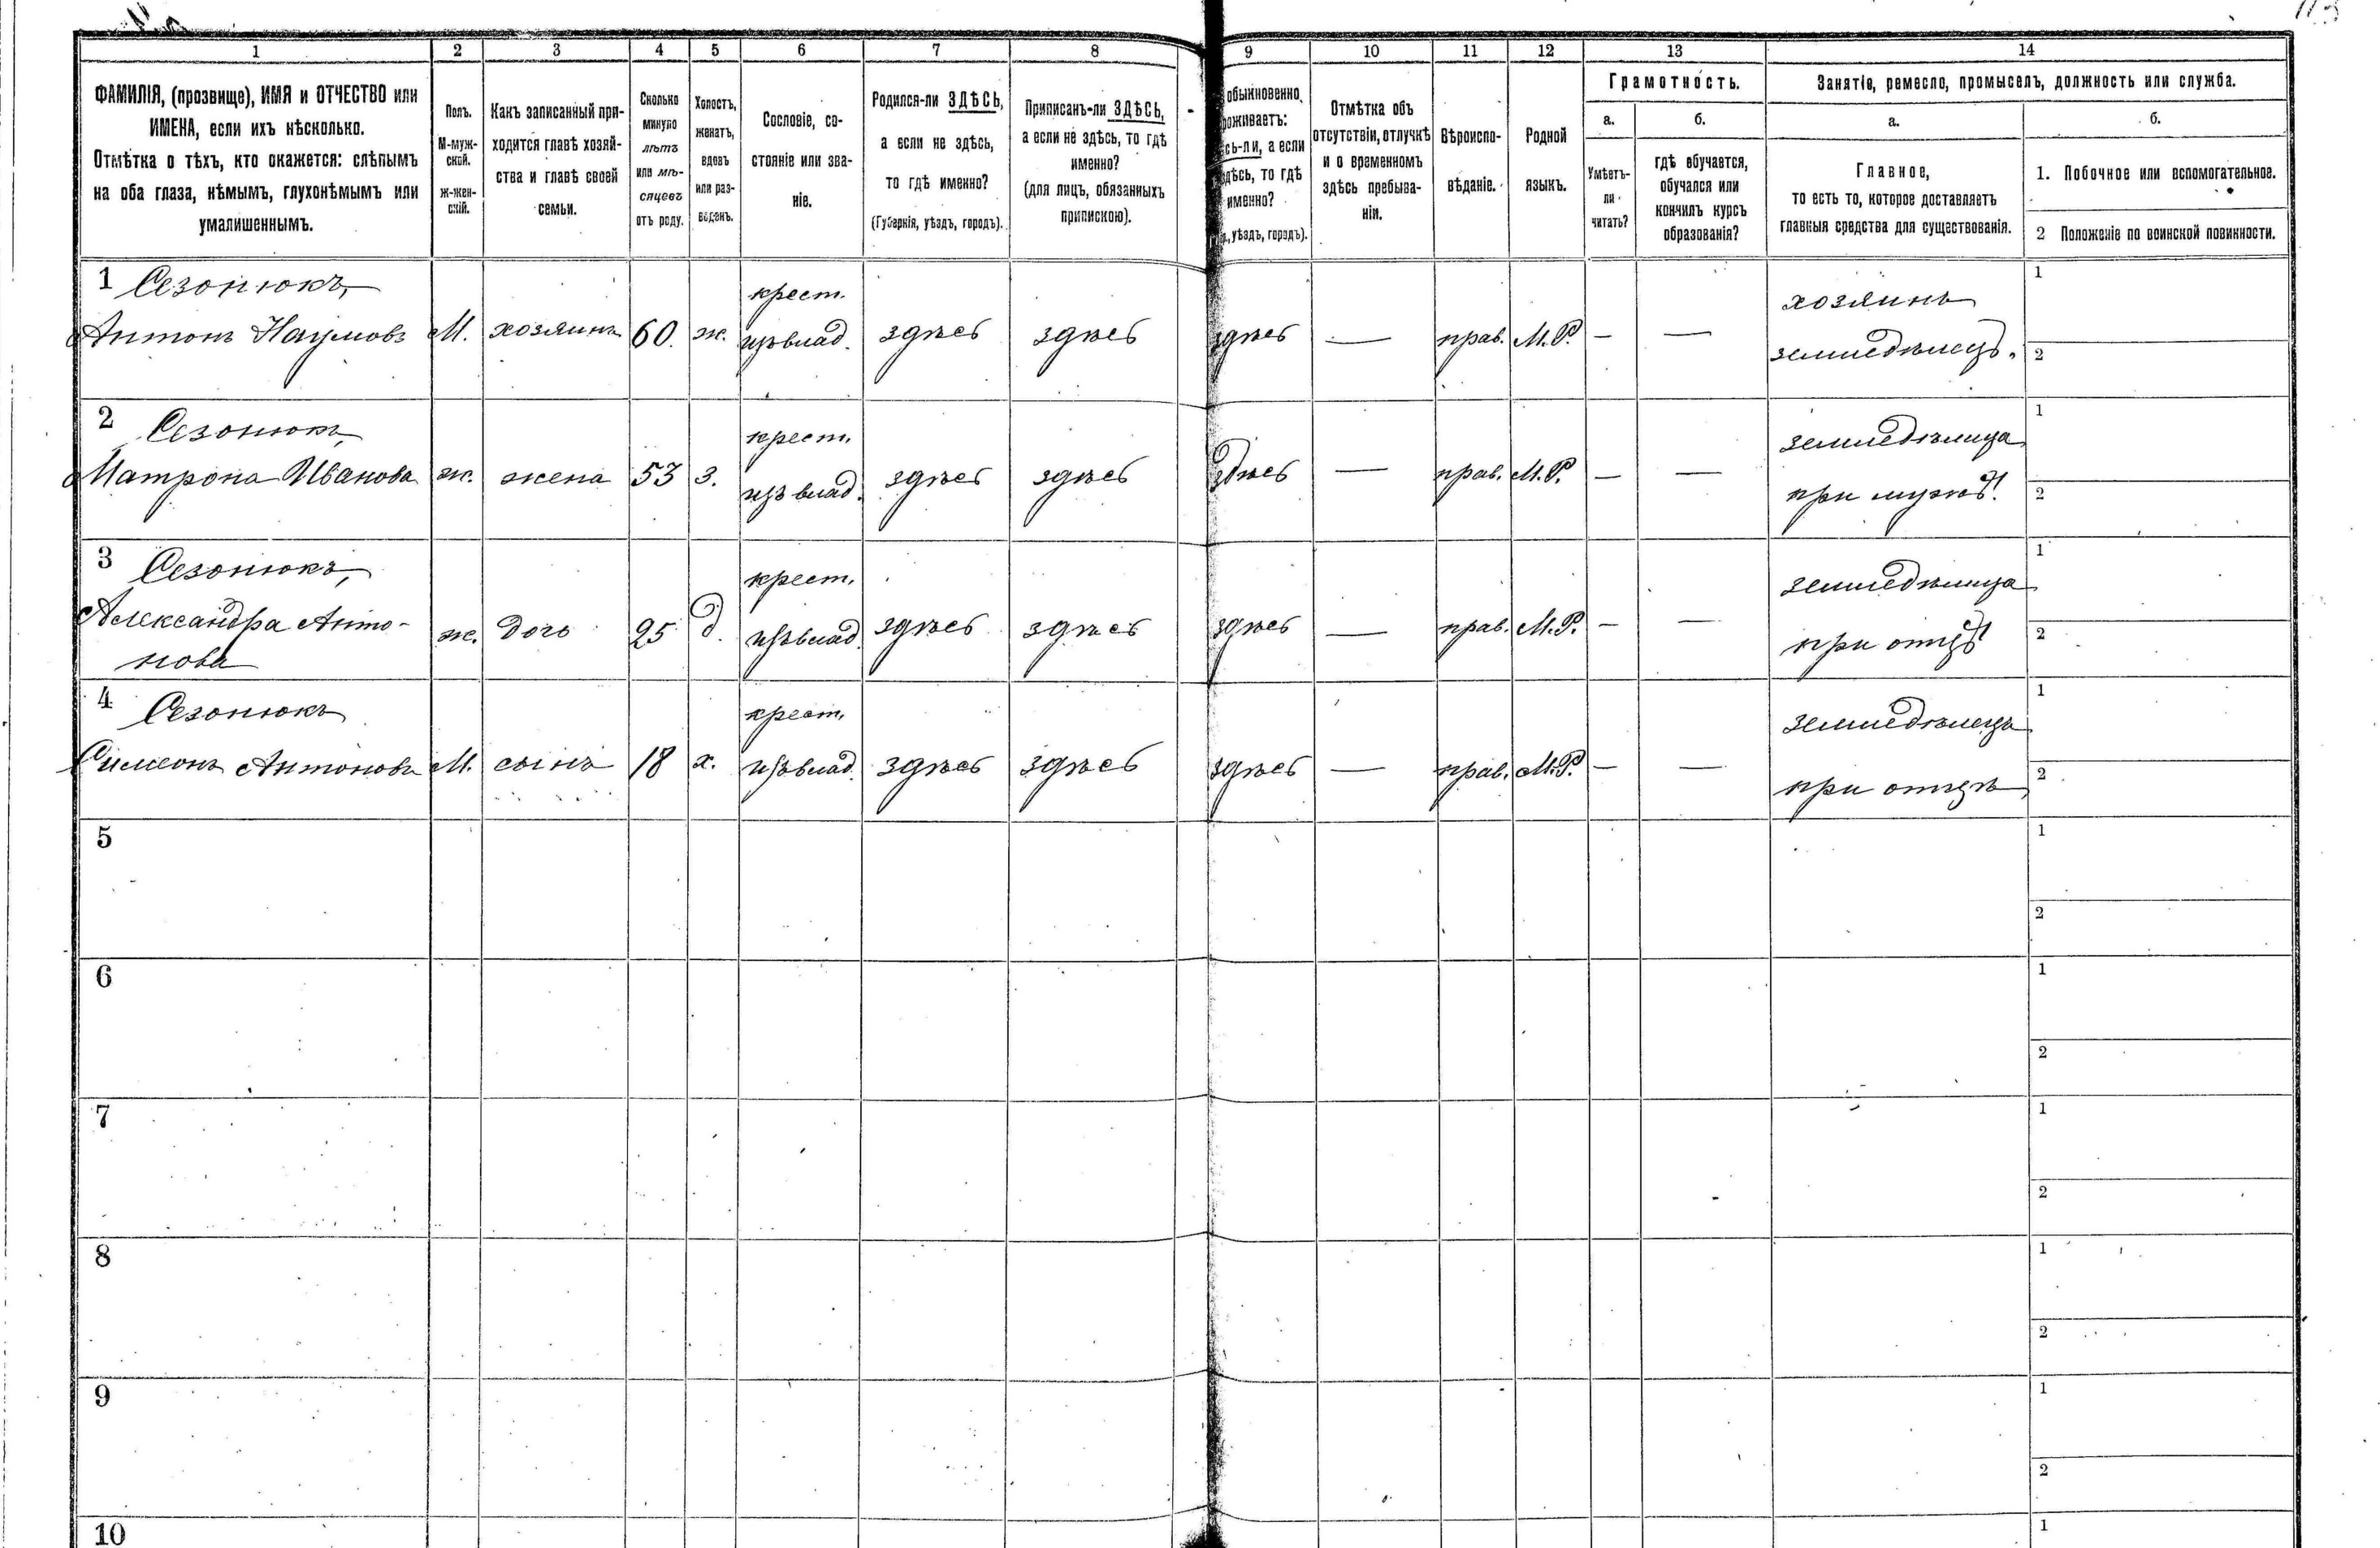 1 2 3 4 5 6 7 8 9 10 11 12 13 14
ФАМИЛІЯ, (прозвище), ИМЯ и ОТЧЕСТВО или
ИМЕНА, если ихъ нѣсколько.
Отмѣтка о тѣхъ, кто окажется: слѣпымъ
на оба глаза, нѣмымъ, глухонѣмымъ или
умалишеннымъ.
Полъ.
М-муж-
ской.
ж-жен-
скій.
Какъ записанный при-
ходится главѣ хозяй-
ства и главѣ своей
семьи.
Сколько
минуло
лѣтъ
или мѣ-
сяцевъ
отъ роду.
Холостъ,
женатъ,
вдовъ
или раз-
веденъ.
Сословіе, со-
стояніе или зва-
ніе.
Родился-ли ЗДѢСЬ,
а если не здѣсь,
то гдѣ именно?
(Губернія, уѣздъ, городъ).
Приписанъ-ли ЗДѢСЬ,
а если не здѣсь, то гдѣ
именно?
(для лицъ, обязанныхъ
припискою).
обыкновенно
оживаетъ:
сь-ли, а если
здѣсь, то гдѣ
именно?
уѣздъ, городъ).
Отмѣтка объ
отсутствіи, отлучкѣ
и о временномъ
здѣсь пребыва-
ніи.
Вѣроиспо-
вѣданіе.
Родной
языкъ.
Грамотность.
а.
Умѣетъ-
ли
читать?
б.
гдѣ обучается,
обучался или
кончилъ курсъ
образованія?
Занятіе, ремесло, промыселъ, должность или служба.
а.
Главное,
то есть то, которое доставляетъ
главныя средства для существованія.
б.
1. Побочное или вспомогательное.
2 Положеніе по воинской повинности.
1 Сезонюкъ, крест. хозяинъ 1
Антонъ Наумовъ М. хозяинъ 60. ж. изъ влад. здѣсь здѣсь здѣсь — прав. М.Р. — — земледѣлецъ. 2
2 Сезонюкъ, крест. земледѣлица 1
Матрона Иванова ж. жена 53 з. изъ влад. здѣсь здѣсь здѣсь — прав. М.Р. — — при мужѣ 2
3 Сезонюкъ, крест. земледѣлица 1
Александра Анто- ж. дочь 25 д. изъ влад. здѣсь здѣсь здѣсь — прав. М.Р. — — при отцѣ 2
нова
4 Сезонюкъ крест. земледѣлецъ 1
Симеонъ Антоновъ М. сынъ 18 х. изъ влад. здѣсь здѣсь здѣсь — прав. М.Р. — — при отцѣ 2
5 1
2
6 1
2
7 1
2
8 1
2
9 1
2
10 1